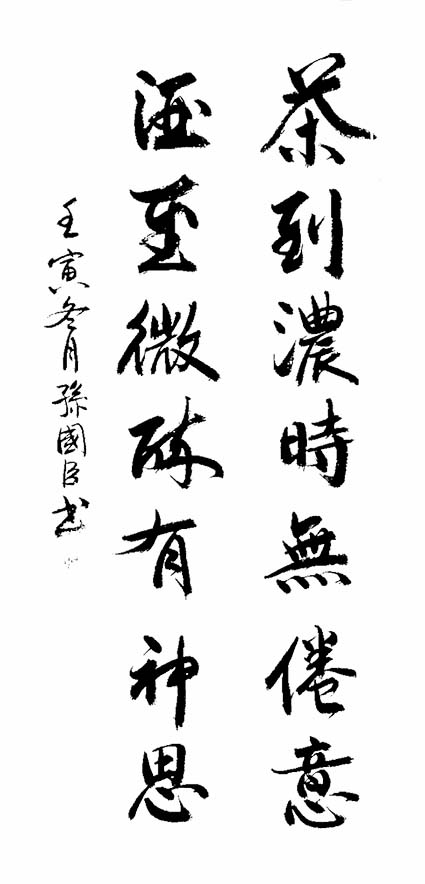 茶到濃時無倦意
酒至微醉有神思
壬寅冬月孫國良书